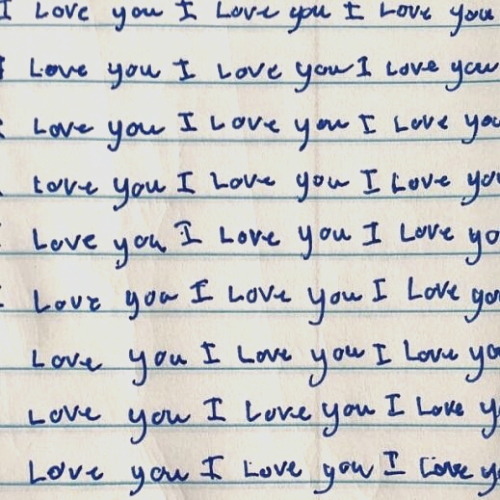 I Love you I Love you I Love you
I Love you I Love you I Love you
Love you I Love you I Love you
Love you I Love you I Love you
Love you I Love you I Love yo
I Love you I Love you I Love you
Love you I Love you I Love yo
Love you I Love you I Love y
Love you I Love you I Love y